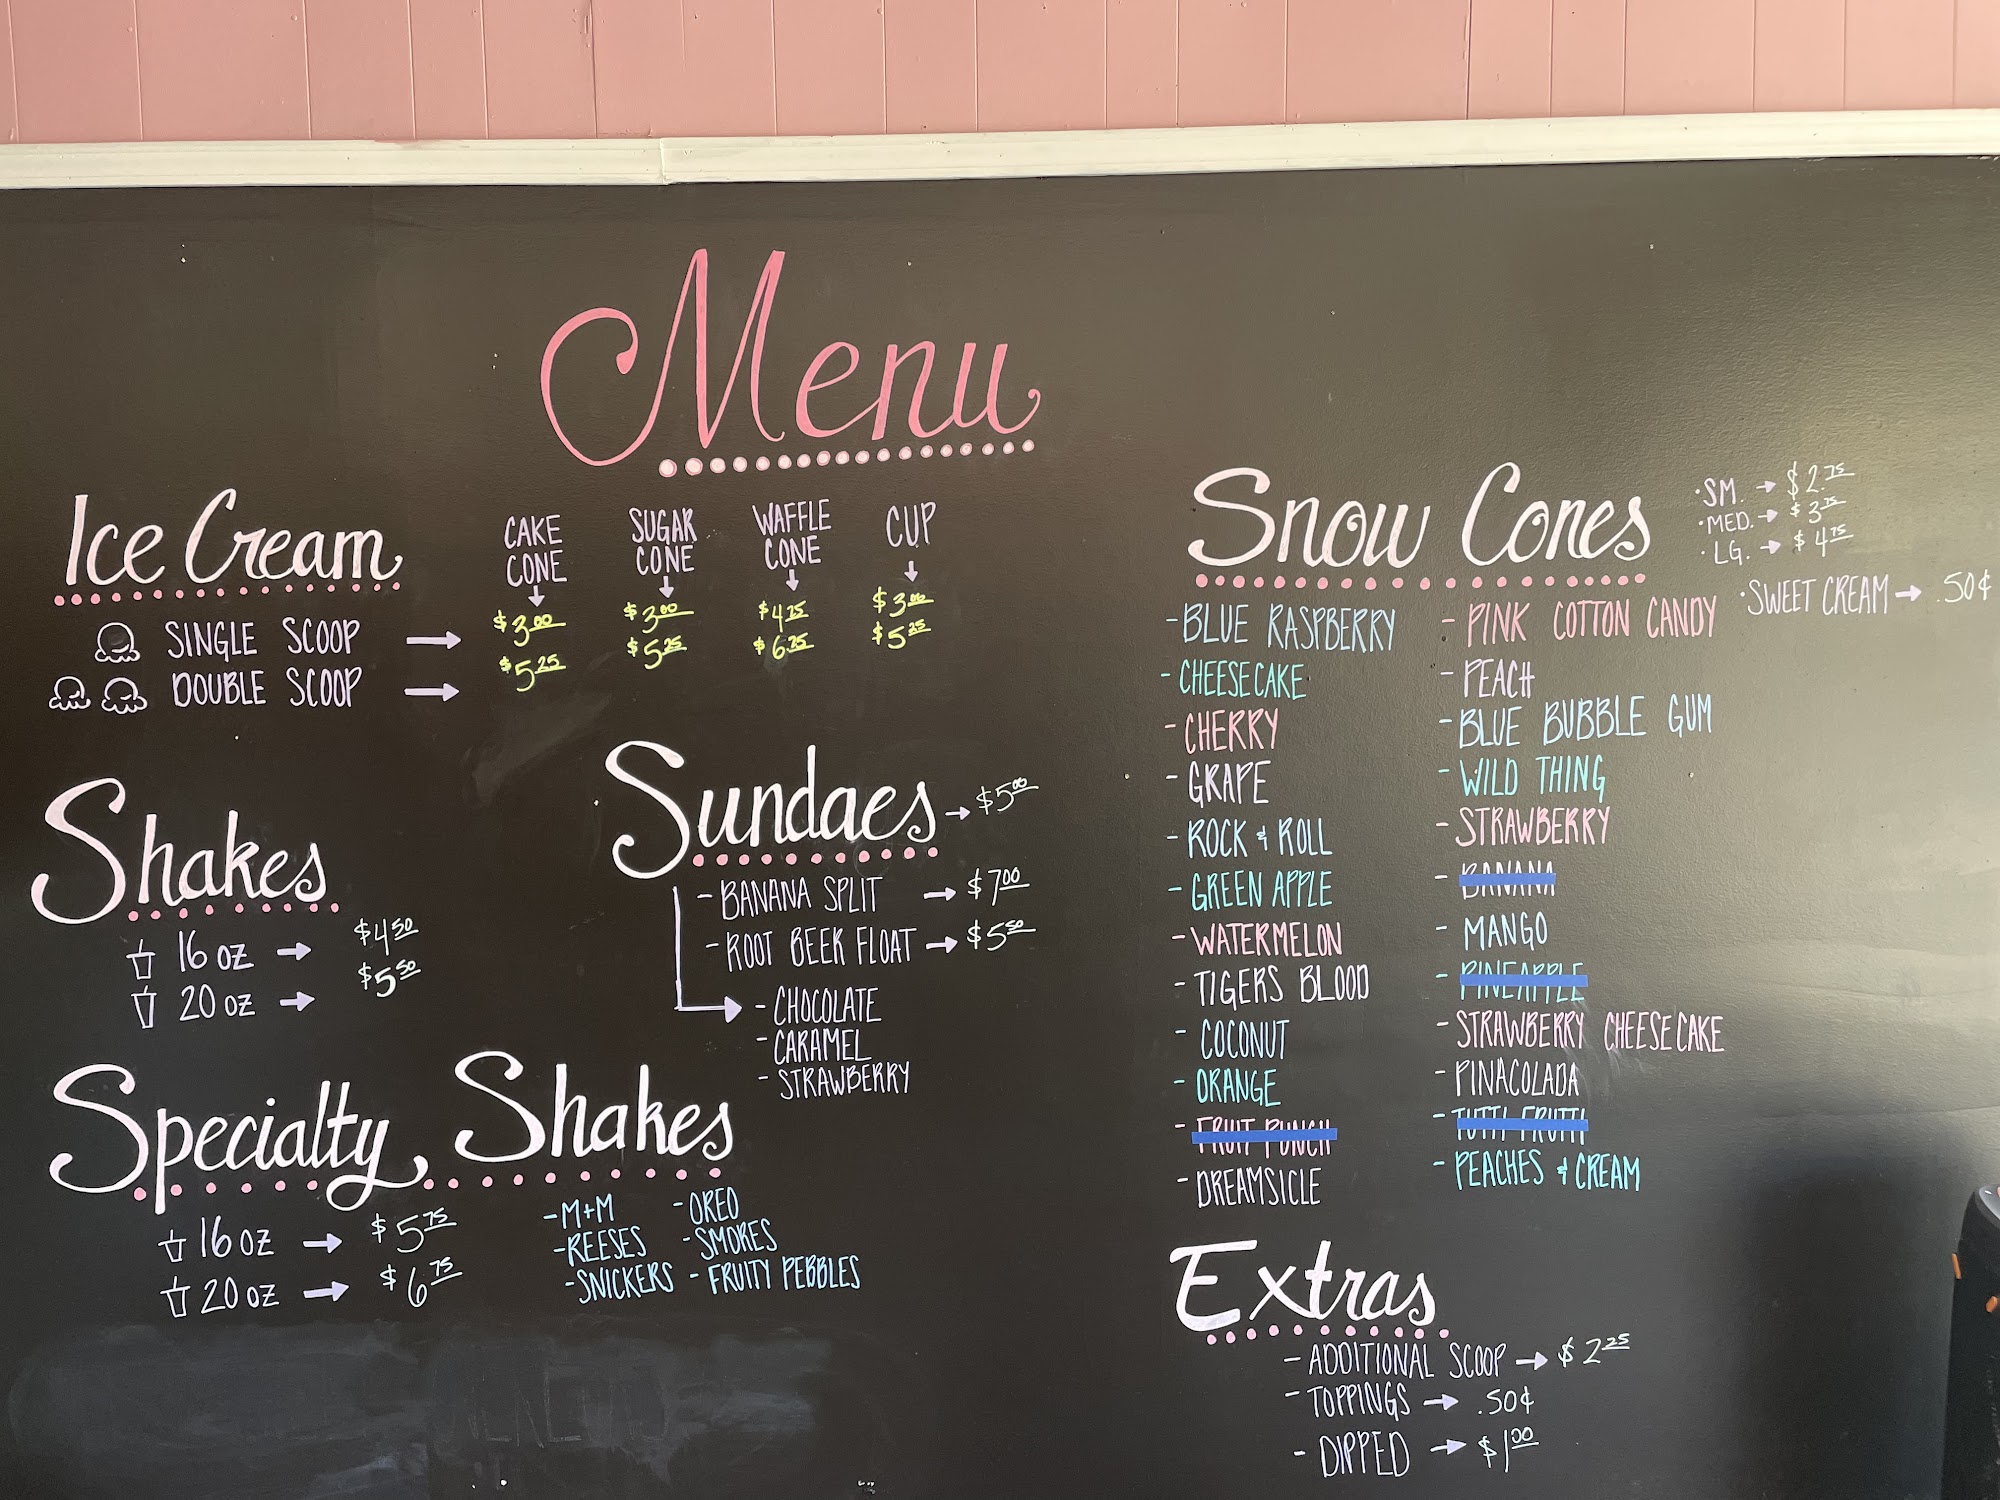 Menu
Ice Cream
CAKE CONE
SUGAR CONE
WAFFLE CONE
CUP
SINGLE SCOOP → $3.00 $3.00 $4.25 $3.00
DOUBLE SCOOP → $5.25 $5.25 $6.25 $5.25
Shakes
16 oz → $4.50
20 oz → $5.50
Sundaes → $5.00
- BANANA SPLIT → $7.00
- ROOT BEER FLOAT → $5.50
- CHOCOLATE
- CARAMEL
- STRAWBERRY
Specialty Shakes
16 oz → $5.75
20 oz → $6.75
- M+M
- REESES
- SNICKERS
- OREO
- SMORES
- FRUITY PEBBLES
Snow Cones
• SM. → $2.75
• MED. → $3.75
• LG. → $4.75
• SWEET CREAM → .50¢
- BLUE RASPBERRY
- CHEESECAKE
- CHERRY
- GRAPE
- ROCK & ROLL
- GREEN APPLE
- WATERMELON
- TIGERS BLOOD
- COCONUT
- ORANGE
- FRUIT PUNCH
- DREAMSICLE
- PINK COTTON CANDY
- PEACH
- BLUE BUBBLE GUM
- WILD THING
- STRAWBERRY
- BANANA
- MANGO
- PINEAPPLE
- STRAWBERRY CHEESECAKE
- PINACOLADA
- TUTTI FRUTTI
- PEACHES & CREAM
Extras
- ADDITIONAL SCOOP → $2.25
- TOPPINGS → .50¢
- DIPPED → $1.00